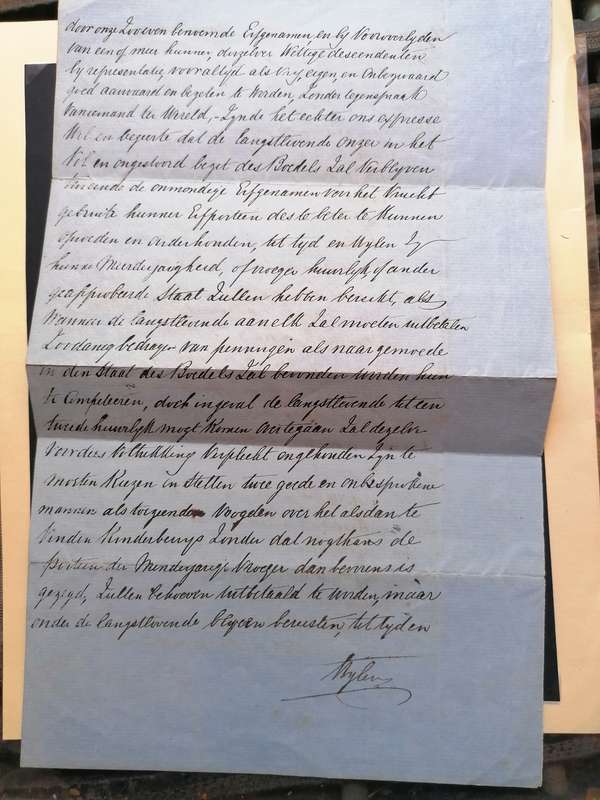 door onze Zooeven benoemde Erfgenamen en by Vooroverlyden
van een of meer hunner, derzelver Wettige descendenten
by representatie, voor altyd als Vry, eigen en Onbezwaard
goed aanvaard en bezeten te Worden, Zonder tegenspraak
Van iemand ter Wereld, - Zynde het echter ons expresse
Wil en begeerte dat de langstlevende onzer in het
Vol en ongestoord bezit des Boedels Zal Verblyven
ten einde de onmondige Erfgenamen voor het Vrucht
gebruik hunner Erfportien des te beter te Kunnen
opvoeden en onderhouden, tot tyd en Wylen Zy
hunne Meerderjarigheid, of vroeger huwelyk, of ander
geapprobeerde Staat Zullen hebben bereikt, als
Wanneer de langstlevende aan elk Zal moeten uitbetalen
Zoodanig bedragen van penningen als naar gemoede
in den Staat des Boedels Zal bevonden worden hun
te Competeeren, doch ingeval de langstlevende tot een
tweede huwelyk mogt Komen overtegaan Zal dezelve
voor dies Voltrekking Verplicht en gehouden Zyn te
moeten Kiezen in stellen twee goede en onbesprokene
mannen als toeziende Voogden over het alsdan te
Vinden Kinderbewys Zonder dat nogthans de
portien der Minderjarige Vroeger dan bevorens is
gezegd, Zullen behoeven uitbetaald te worden, maar
onder de langstlevende blyven berusten, tot tyd en
Wylen